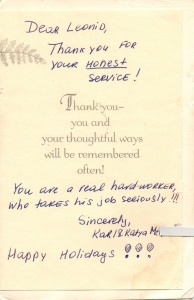 Dear Leonid,
Thank you for
your honest
service!
Thank you–
you and
your thoughtful ways
will be remembered
often!
You are a real hard-worker,
who takes his job seriously!!!
Sincerely,
Karl & Katya
Happy Holidays!!!